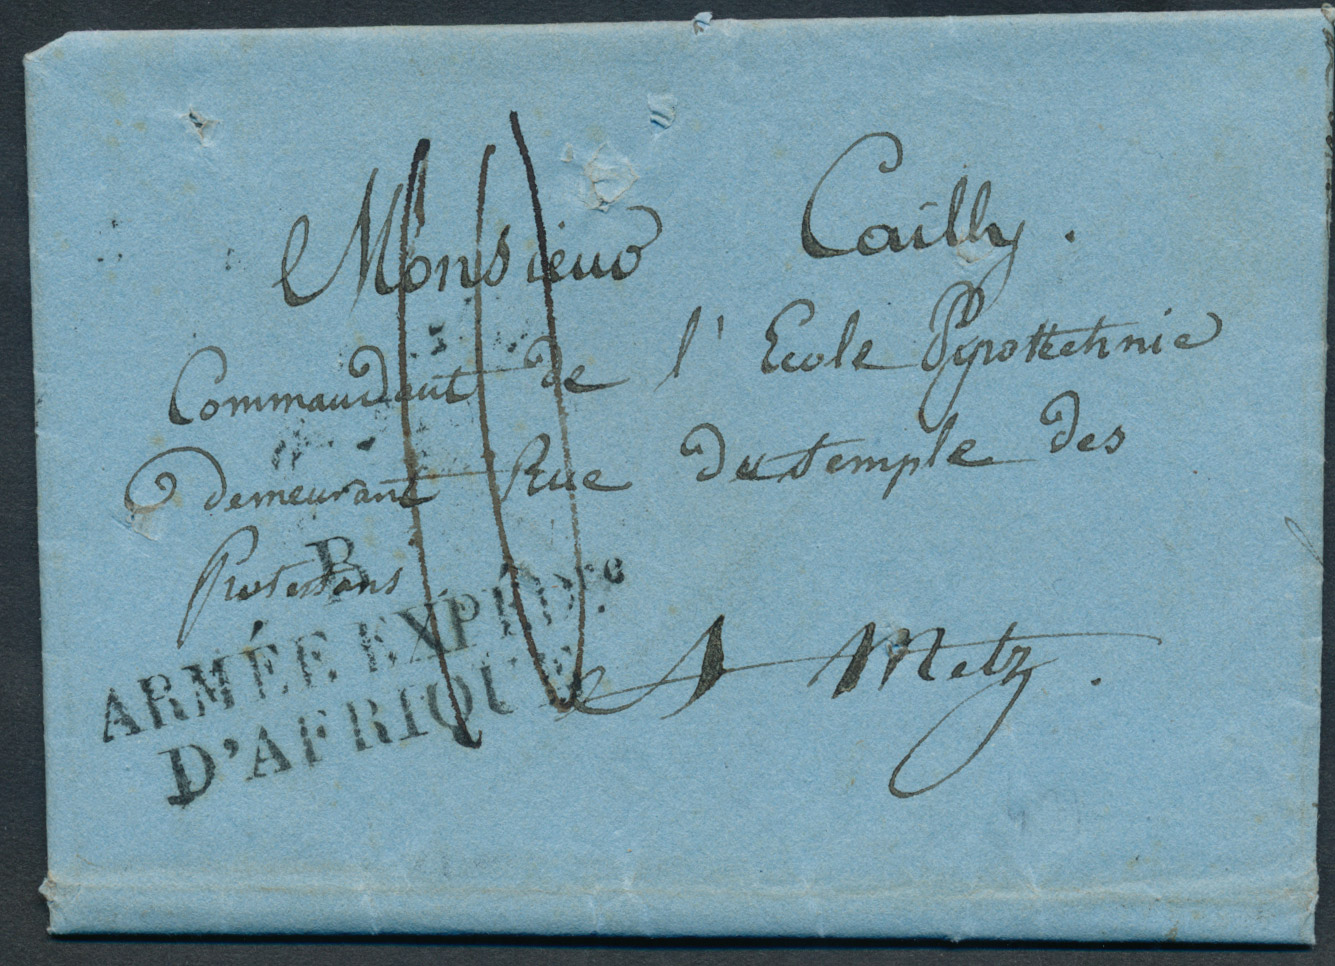 Monsieur Cailly.
Commandant de l'Ecole Pyrottechnie
demeurant Rue du temple des
Protestans
A Metz.
B
ARMÉE EXPÉDRE
D'AFRIQUE